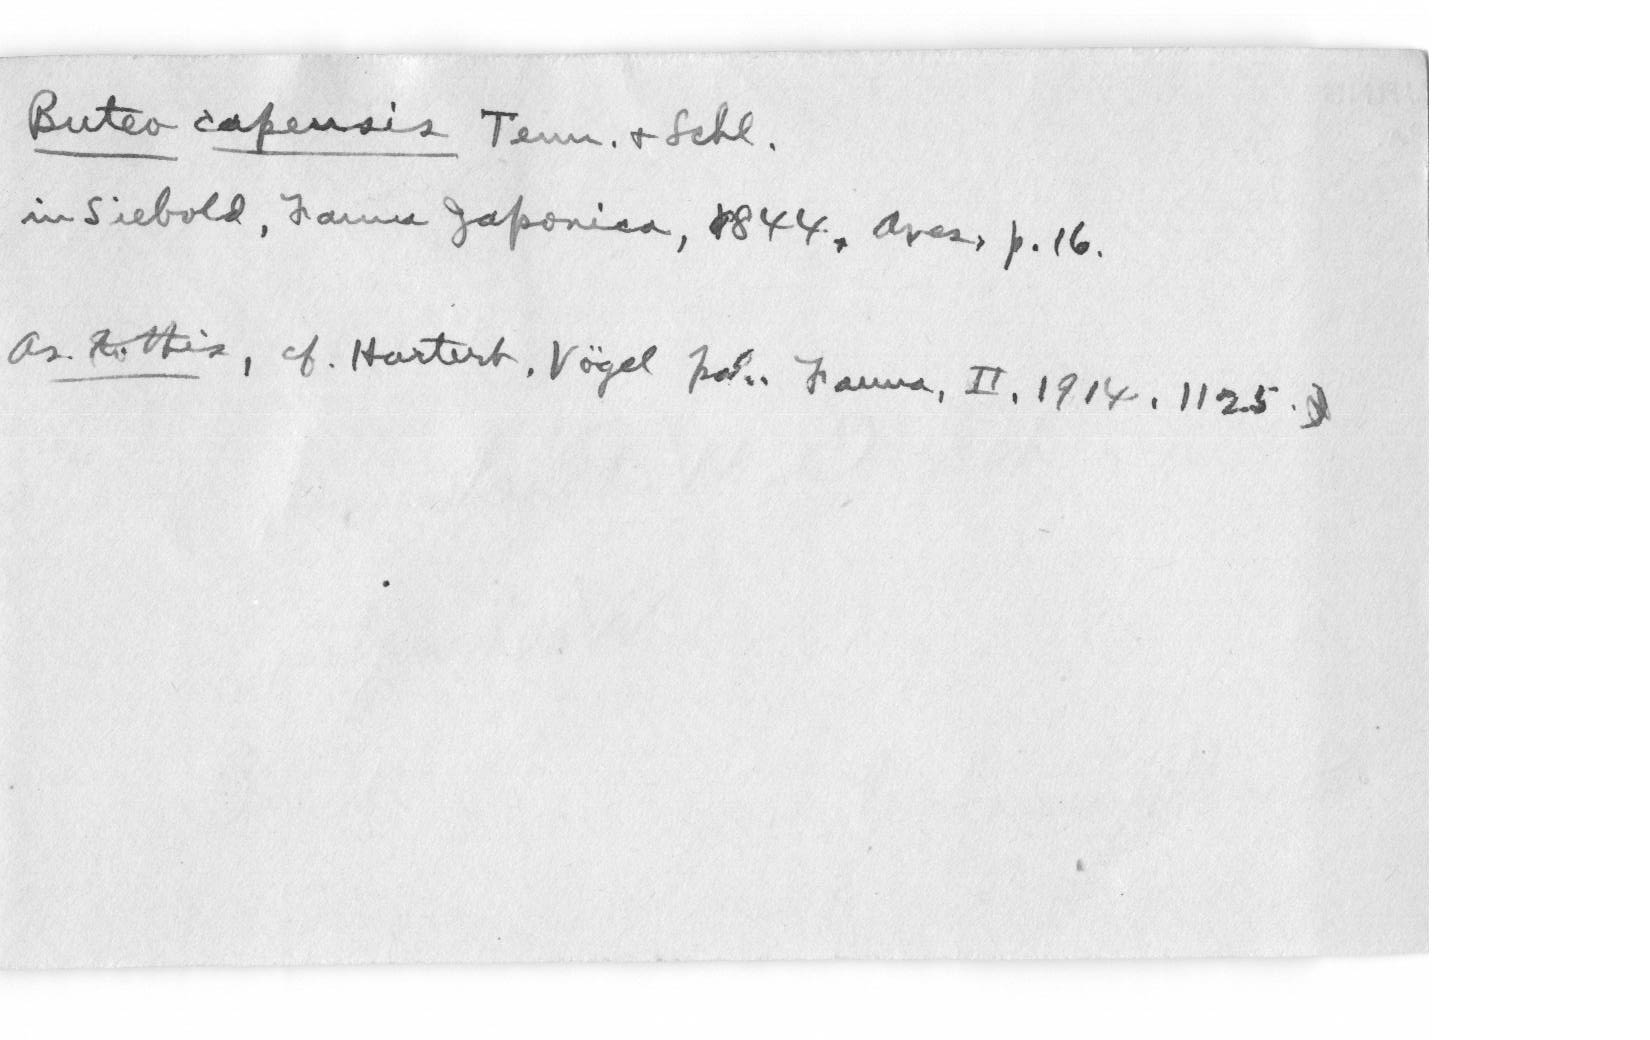 Buteo capensis Temm. & Schl.
in Siebold, Fauna Japonica, 1844, Aves, p. 16.
As. , cf. Hartert, Vögel pal.. Fauna, II, 1914, 1125.